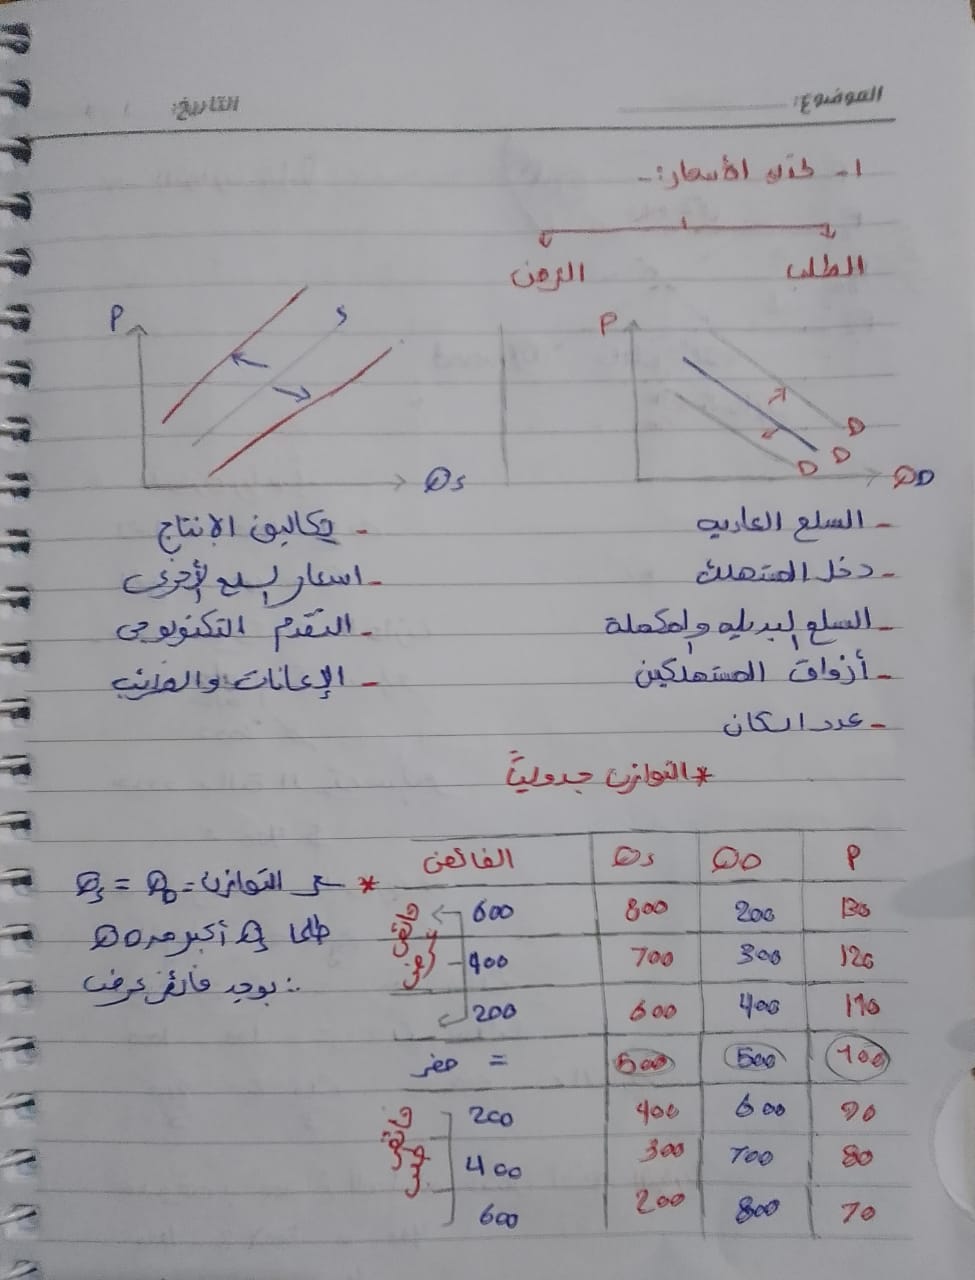 الموضوع: التاريخ:
1- الأسعار:-
الطلب العرض
P
D
D
D
QD
P
S
Qs
- السلع العاديه
- دخل المستهلك
- السلع البديله والمكملة
- أزواق المستهلكين
- عدد السكان
- تكاليف الإنتاج
- اسعار السلع الأخرى
- التقدم التكنولوجي
- الإعانات والضرائب
* التوازن جدولياً
P QD Qs الفائض
130 200 800 600
120 300 700 400
110 400 600 200
100 500 500 = صفر
90 600 400 200
80 700 300 400
70 800 200 600
فائض عرض
فائض
* سعر التوازن = QD = Qs
طالما Qs أكبر من QD
∴ يوجد فائض عرض